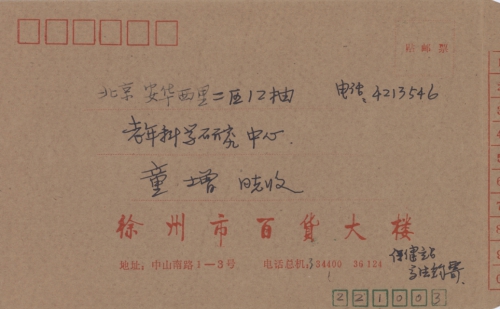 贴邮票
北京 安华西里二区12抽 电话:4213546
老年科学研究中心
童增 收
徐州市百货大楼
地址:中山南路1—3号 电话总机 334400 36124
保健站
寄
221003